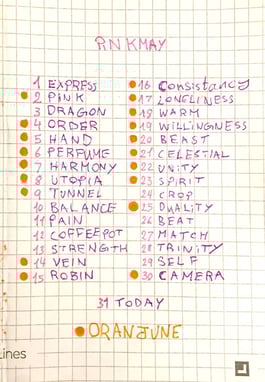 PINKMAY
1 EXPRESS
2 PINK
3 DRAGON
4 ORDER
5 HAND
6 PERFUME
7 HARMONY
8 UTOPIA
9 TUNNEL
10 BALANCE
11 PAIN
12 COFFEEPOT
13 STRENGTH
14 VEIN
15 ROBIN
16 Consistancy
17 LONELINESS
18 WARM
19 WILLINGNESS
20 BEAST
21 CELESTIAL
22 UNiTY
23 SPIRIT
24 CROP
25 DUALiTY
26 BEAT
27 MATCH
28 TRiNiTY
29 SELF
30 CAMERA
31 TODAY
ORANJUNE
Lines